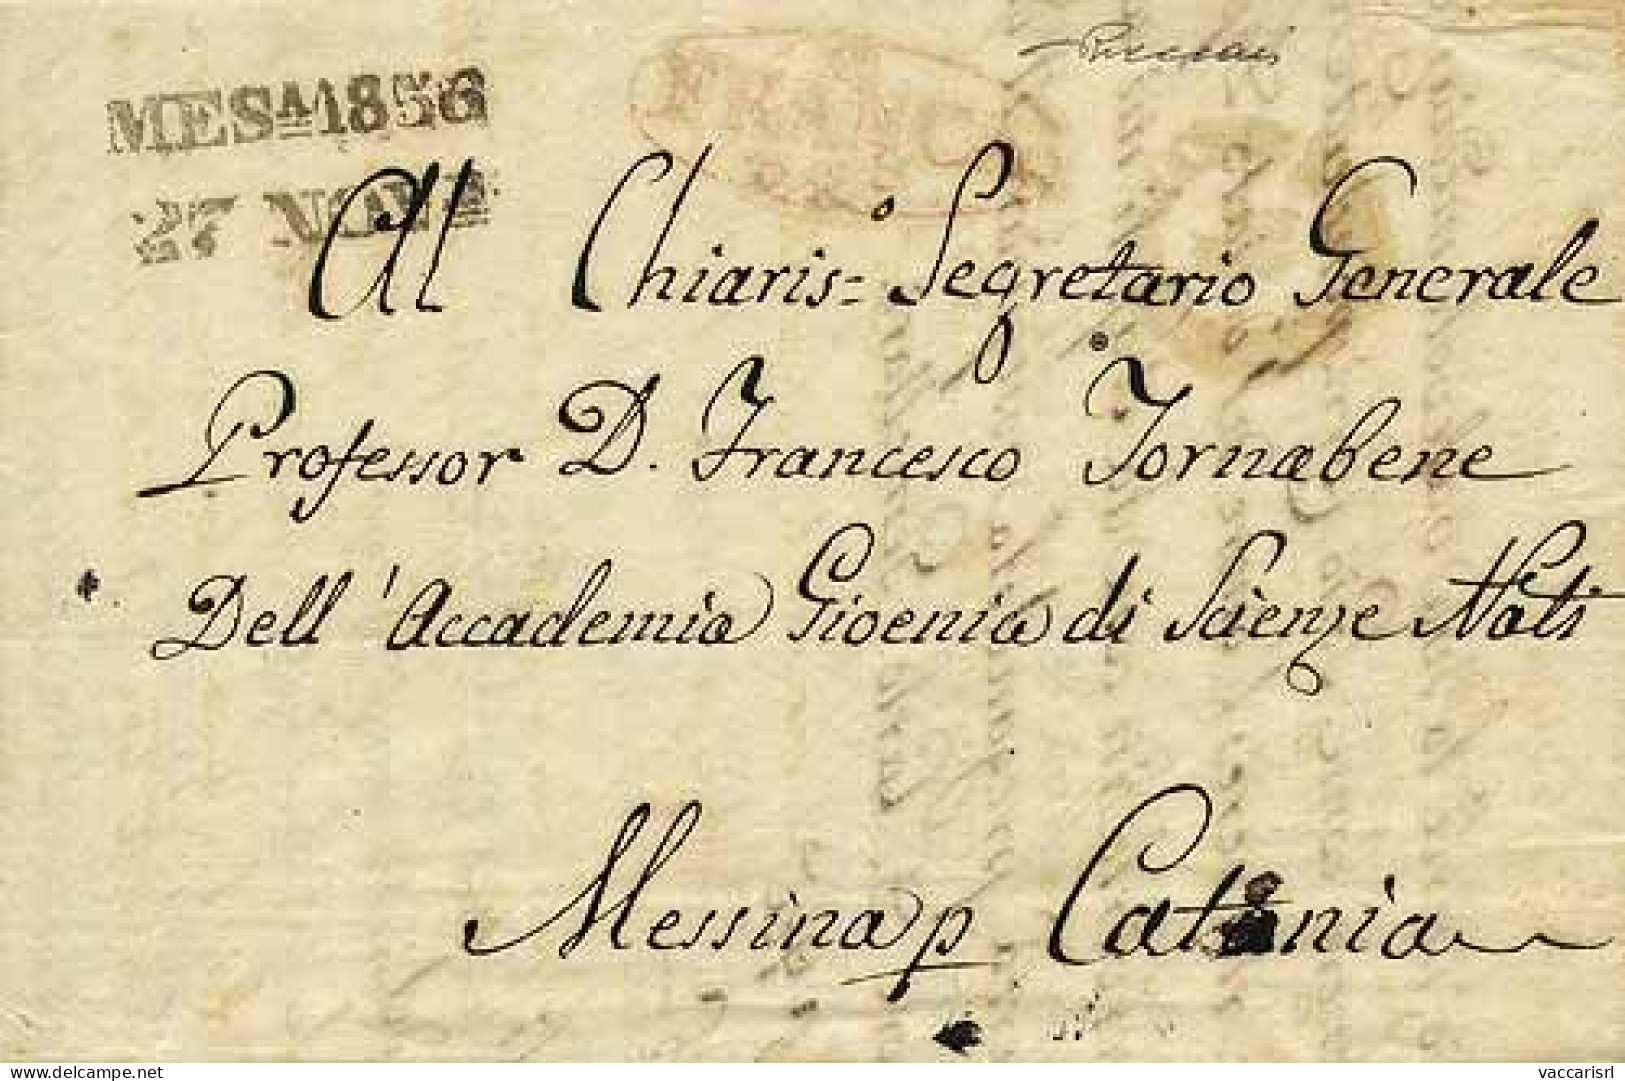 MES.A 1856
27 NOV.E
FRANCO
Al Chiaris:o Segretario Generale
Professor D. Francesco Tornabene
Dell'Accademia Gioenia di Scienze Nali
Messina p Catania
vaccarisrl